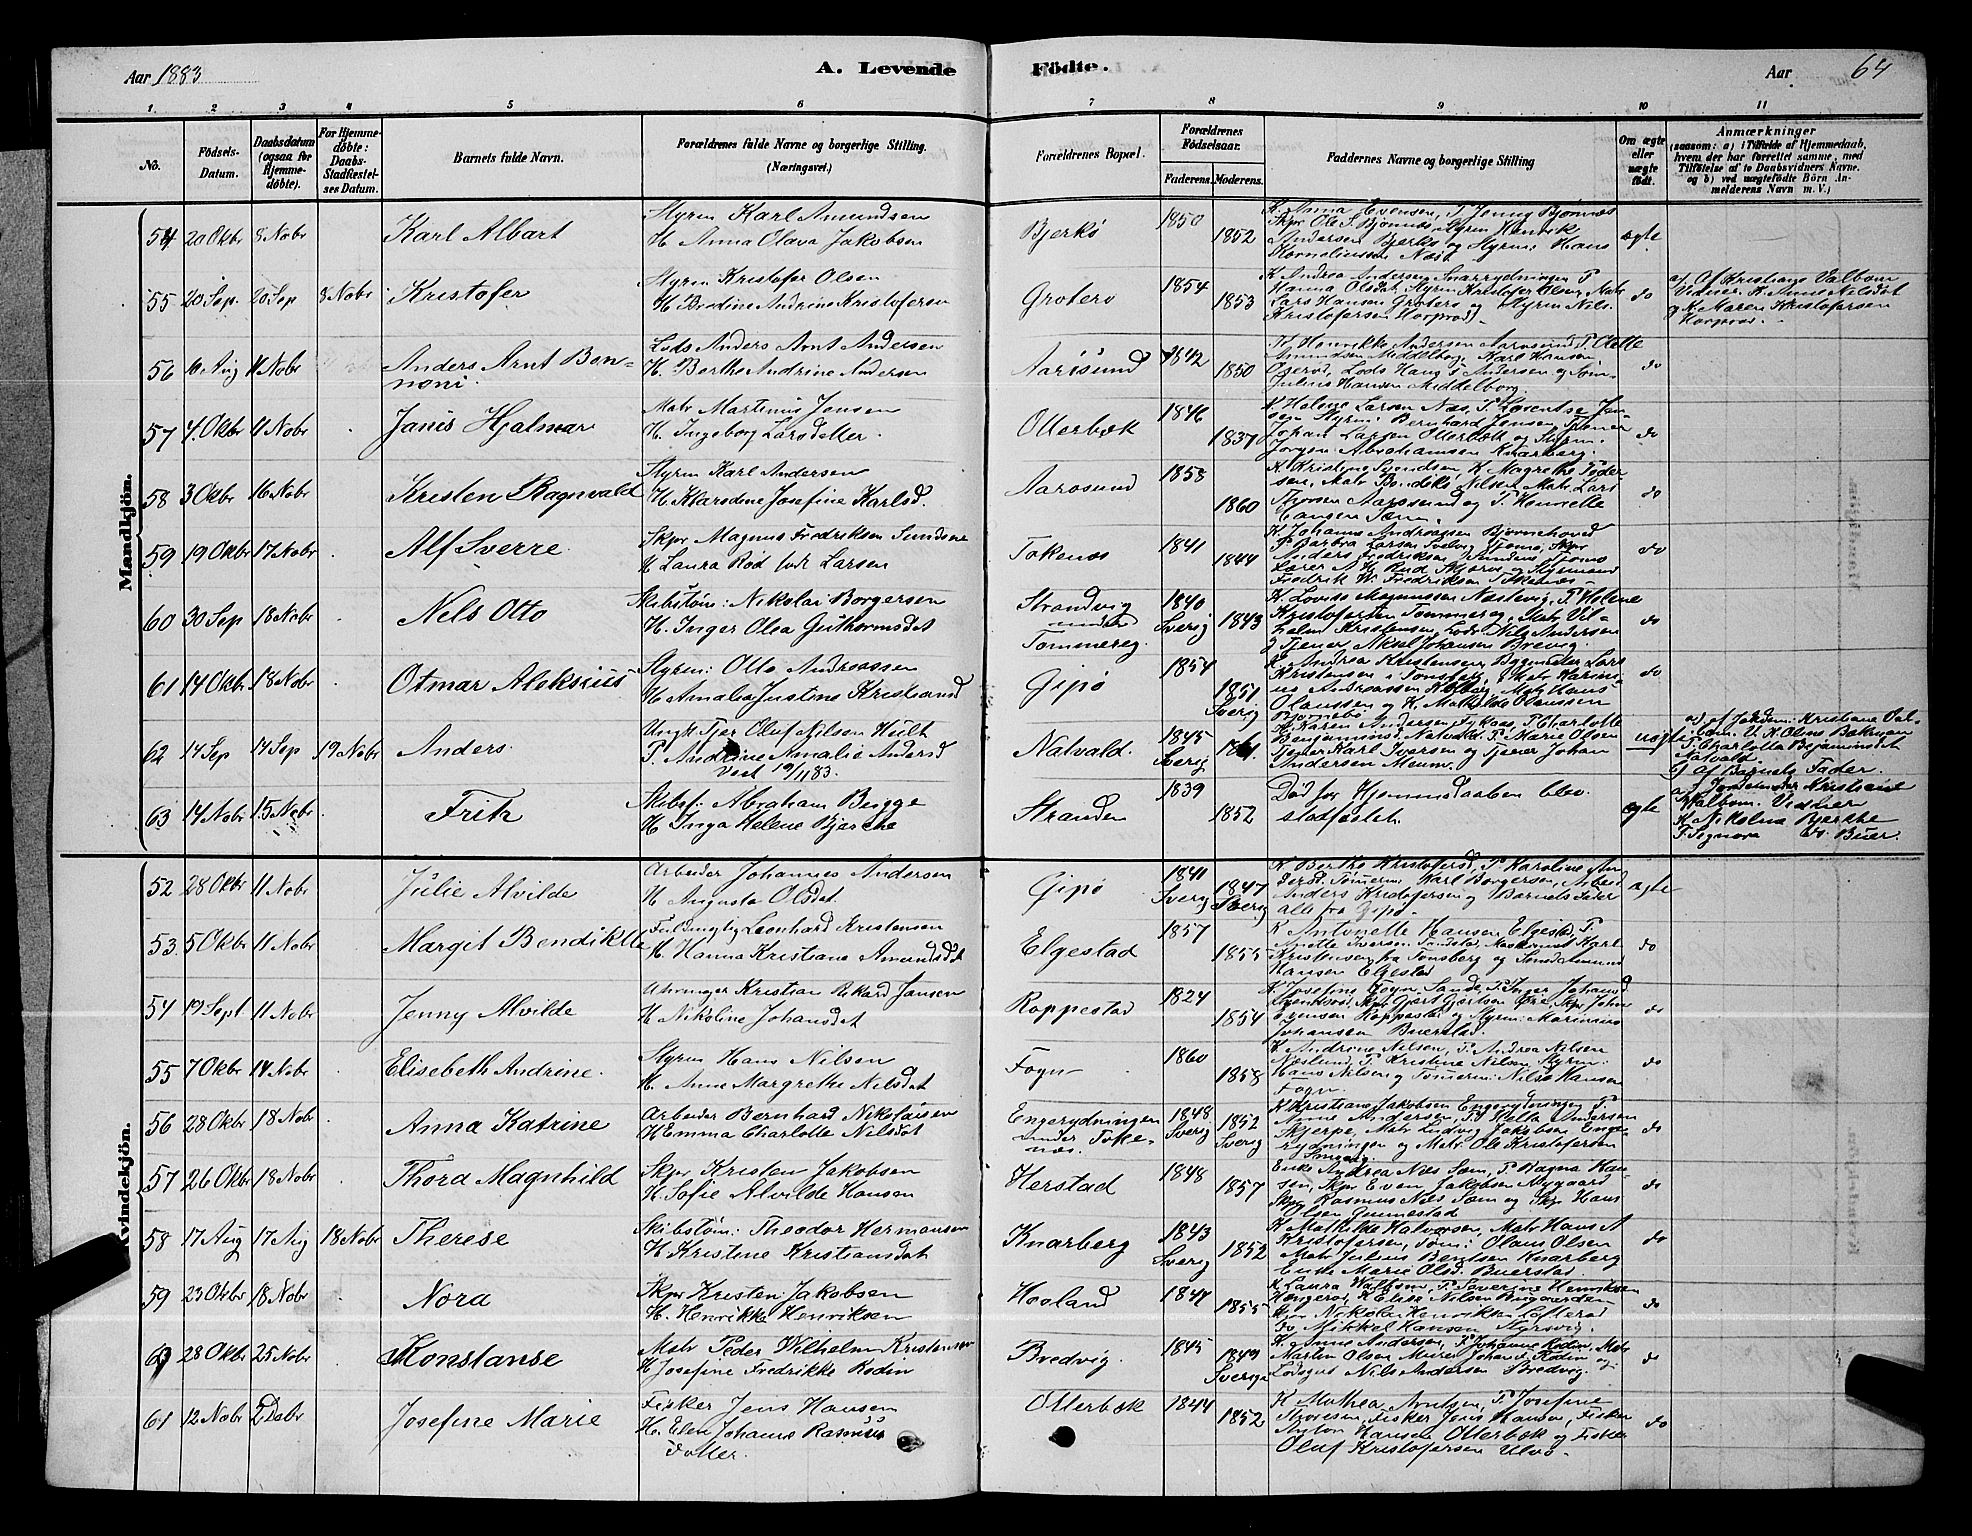 Aar 1883
A. Levende
Födte.
Aar
64
1. 2 3 4 5 6
7 8 9 10 11
No.
Födsels-
Datum.
Daabsdatum
(ogsaa for
Hjemme-
döbte).
For Hjemme-
döbte:
Daabs-
Stadfæstel-
ses Datum.
Barnets fulde Navn.
Forældrenes fulde Navne og borgerlige Stilling.
(Næringsvei.)
Forældrenes Bopæl.
Forældrenes
Födselsaar.
Faderens. Moderens.
Faddernes Navne og borgerlige Stilling
Om ægte
eller
uægte
födt.
Anmærkninger
(saasom: a) i Tilfælde af Hjemmedaab,
hvem der har forrettet samme, med
Tilföielse af to Daabsvidners Navne.
og b) ved uægtefödte Börn An-
melderens Navn m. V.)
Mandkjön.
54 20 Oktbr 8 Novbr Karl Albart
Styrm Karl Amundsen
H. Anna Olava Jakobsen
Bjerkö 1850 1852
K. Anna Evensen, P. Jenny Bjönnes
Skpr Ole S. Bjönnes Styrm Henrik
Andersen Bjerkö og Styrm: Hans
Korneliussen Næs
ægte
55 20 Sep. 20 Sep 8 Novbr Kristofer
Styrm Kristofer Olsen
H. Bredine Andrine Kristofersen
Groterö 1854 1853
K. Andrea Andersen Snarrydningen P.
Hanna Olsdat, Styrm Kristofer Olsen, Matr
Lars Hansen Groterö og Styrm Nils
Kristofersen Horperöd
do
a) Af Kristiane Valbom
Vidner: K. Anne Nilsdat
og K. Maren Kristofersen
Horperöd.
56 16 Aug 11 Novbr Anders Arnt Ben-
noni.
Lods Anders Arnt Andersen
H. Berthe Andrine Andersen
Aarösund 1842 1850
K. Henrikke Andersen Aarösund P. Olette
Amundsen Middelborg, Karl Hansen
Oseröd, Lods Hans S Andersen og Töm.
Julius Hansen Middelborg.
do
57 4. Oktbr 11 Novbr Janis Hjalmar
Matr Martinus Jensen
H. Ingeborg Larsdatter.
Otterbæk 1846 1837
K. Helene Larsen Næs, P. Lorentse Jen-
sen, Styrm: Bernhard Jensen, Tjömer
Johan Larsen Otterbæk og Styrm.
Jörgen Abrahamsen Knarberg.
do
58 3 Oktbr 16 Novbr Kristen Ragnvald
Styrm Karl Andersen
H. Klarsdine Josefine Karlsd.
Aarösund 1858 1860
K. Kristine Svendsen, K. Magrethe Peder
sen, Matr Bendiks Nilsen, Matr. Lars
Thorsen Aarösund og P. Henriette
Hansen Sem.
do
59 19 Oktbr 17 Novbr Alf Sverre
Skpr Magnus Fredriksen Sundene
H Laura Röd födt Larsen
Tokenæs 1841 1844
K. Johanne Andreassen Bjönnehoved
P. Barbra Larsen Solvig Tjömö, Skpr
Anders Fredriksen Sundene, Tjömö
Lærer A. H. Rud Skjerve og Styrmand
Fredrik W. Fredriksen Tokenæs
do
60 30 Sep 18 Novbr Nels Otto
Skibstöm: Nikolai Borgersen
H. Inger Olea Guthormsdat
Strandvig
under
Tommereg. 1840
Sverig 1843
K. Lovise Magnussen Næstevig, P. Helene
Kristofersen Tommereg, Matr. Vil-
helm Kristensen, Lods Nils Andersen
og Tjener Aksel Johansen Brevig.
do
61 14 Oktbr 18 Novbr Otmar Aleksius
Styrm: Otto Andreassen
H Amalia Justine Kristiansd
Gipö 1854 1851
Sverig
K. Andrea Kristensen, Bygmester Lars
Kristensen i Tönsberg, Matr. Karini-
us Andreassen Kolberg, Matr Hans
Olaussen og K. Mathilde Olaussen
Bjönnebo.
do
62 14 Sep 14 Sep 19 Novbr Anders.
Ungk Tjer Oluf Nilsen Hult
P. Andrine Amalie Andersd
Vest 19/11 83.
Natvald. 1845
Sverig 1861.
K. Karen Andersen Fykaas, P. Charlotte
Benjaminsd, Natvald, P. Marie Olsen
Tjener Karl Iversen og Tjener Johan
Andersen Meum.
uægte
a) af Jordem: Kristiane Val-
bom. V. K. Oline Bakman
P. Charlotta Bejaminsdat
Natvald.
b) af Barnets Fader.
63 14 Novbr 15 Novbr Frik
Skibsf: Abraham Bugge
H. Inga Helene Bjerche
Stranden 1839 1852
Död för Hjemmedaaben blev
stadfæstet.
ægte
a) Jordemoder Kristiane
Walbom. Vidner
K. Nikolina Bjerche
P. Signora do. Buer.
Kvindekjön.
52 28 Oktbr 11 Novbr Julie Alvilde
Arbeider Johannes Andersen
H Augusta Olsdat.
Gipö 1841
Sverig 1847
Sverig
K Berthe Kristofersd, P. Karoline An
dersd. Tömerm. Karl Borgersen, Arbeid
Anders Kristofersen og Barnets Fader
alle fra Gipö.
ægte
53. 5 Oktbr 11 Novbr Margit Bendikte
Fuldmægtig Leonhard Kristensen
H. Hanna Kristiane Amundsdt
Elgestad 1857 1855
K Antonette Hansen Elgestad, P.
Anette Iversen Tandstad, Maskinist Karl
Kristensen fra Tönsberg og Smed Amund
Hansen Elgestad
do
54 19 Sept 11 Novbr Jenny Alvilde
Opsynger Kristian Rikard Jansen
H Nikoline Johansdat
Roppestad 1824 1854
K Josefine Fogn, Sande, P. Inger Johansd
Evenseröd, Skpr Gjert Gjertsen Öra, Skpr Johan
Evensen Roppestad og Styrm: Marinius
Johansen Buerstad.
do
55 7 Oktbr 14 Novbr Elisebeth Andrine.
Styrm Hans Nilsen
H. Anne Margrethe Nilsdat
Fogn 1860 1858
K Andrine Nilsen, P. Andrea Nilsen
Næslund, P. Kristine Nilsen Styrm
Hans Nilsen og Tömerm: Nils Hansen
Fogn.
do
56 28 Oktbr 18 Novbr Anna Katrine
Arbeider Bernhard Nikolaisen
H Emma Charlotte Nilsdat
Engerydningen
under Toke-
næs. 1848
Sverig 1852
Sverig
K Kristiane Jakobsen Engerydningen, P.
Anne Andersen, P. Hella Andersen
Skjerpe, Matr Ludvig Jakobsen Enge-
rydningen og Matr. Ole Kristofersen
do
57 26 Oktbr 18 Novbr Thora Magnhild
Skpr Kristen Jakobsen
H. Sofie Alvilde Hansen
Herstad 1848 1857
Enke Andrea Næs Sem, P. Ragna Han-
sen, Skpr Even Jakobsen Nygaard
Skpr Rasmus Næs Sem og Skpr Hans
Olsen Gunnestad
do
58 17 Aug 17 Aug 18 Novbr Therese
Skibstöm: Theodor Hermansen
H Kristine Kristiansdat
Knarberg 1843
Sverig 1852
K Mathilde Halvorsen, Matr Hans A
Kristofersen, Töm: Olaus Olsen
Matr Julius Bentsen Knarberg
Enke Marie Olsd. Buerstad.
do
59 23 Oktbr 18 Novbr Nora
Skpr Kristen Jakobsen
H. Henrikke Henriksen
Hooland 1847 1855
K Laura Walbom, P. Severine Henriksen
Horgeröd, K. Elise Nilsen Buggaarden
Skpr Nikolai Henriksen Lofteröd
do Mikkel Hansen Nyrsvig.
do
60 28 Oktbr 25 Novbr Konstanse
Matr Peder Wilhelm Kristensen
H Josefine Fredrikke Rodin
Bredvig. 1845 1849
Sverige
K. Anna Andersen, P. Johanne Rodin, Matr
Martin Olsen, Murer Johan F. Rodin og
Lodsgut Nils Andersen Bredvig.
do
61 12 Novbr 2 Decbr Josefine Marie
Fisker Jens Hansen
H. Elen Johanne Rasmus
Datter.
Otterbæk 1844 1852
K Mathea Arntsen, P Josefine
Thoresen, Fisker Jens Hansen, Fisker
Anton Hansen Otterbæk og Fisker
Oluf Kristofersen Ulvö
do